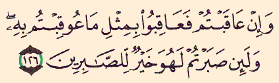 وَإِنْ عَاقَبْتُمْ فَعَاقِبُوا۟ بِمِثْلِ مَا عُوقِبْتُم بِهِۦ ۖ
وَلَئِن صَبَرْتُمْ لَهُوَ خَيْرٌ لِّلصَّـٰبِرِينَ ١٢٦